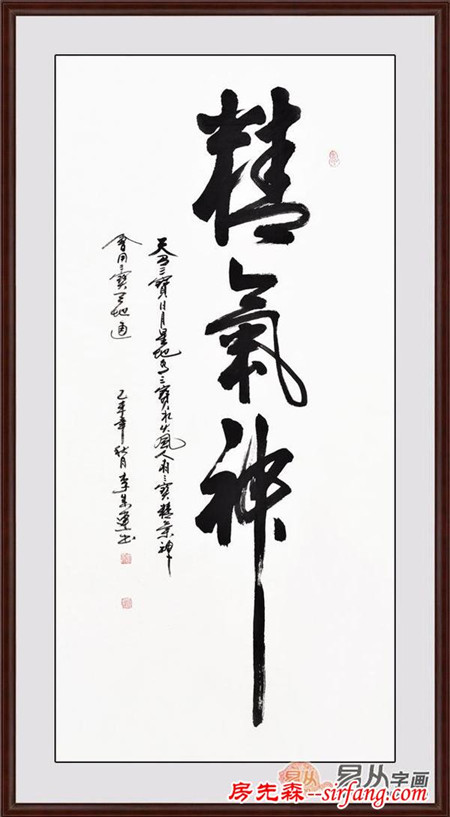 精氣神
天有三寶日月星地有三寶水火風人有三寶精氣神
會用三寶天地通
乙未年秋月李
易从
易从字画
房先森--sirfang.com